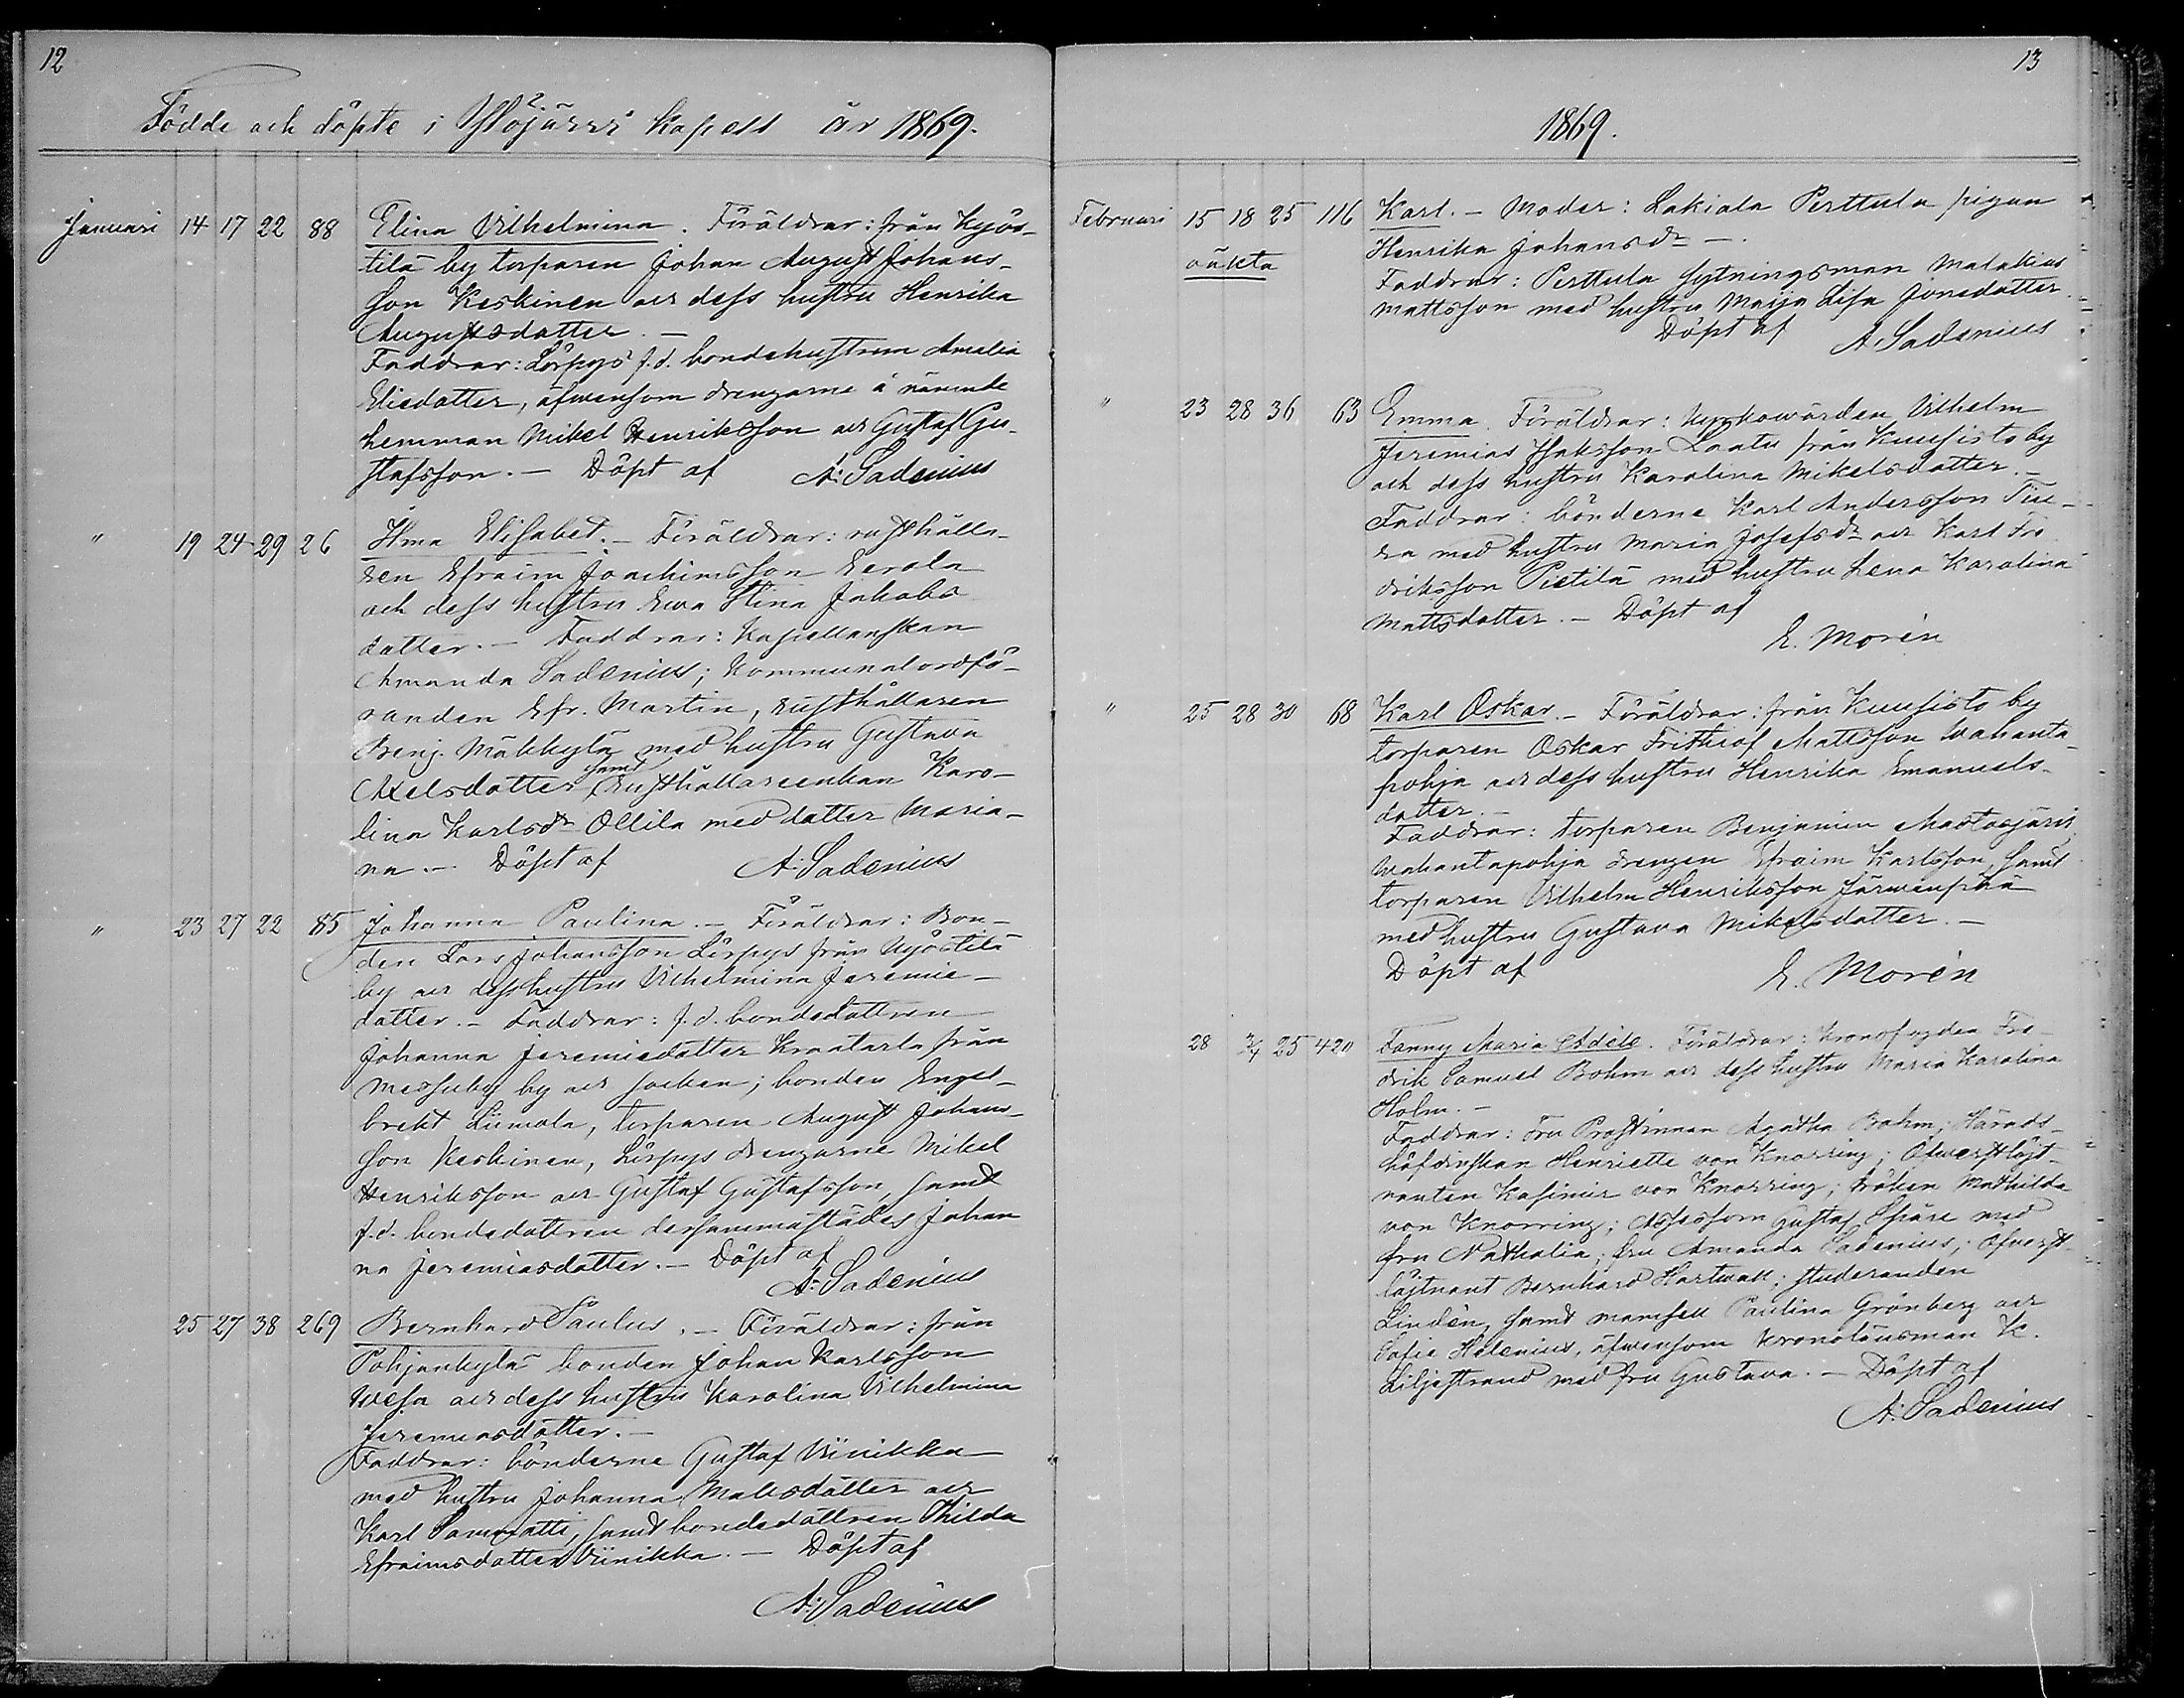 12
Födde och döpte i Ylöjärvi kapell år 1869.
Januari 14 17 22 88 Elina Vilhelmina. Föräldrar: från Kyös-
tilä by torparen Johan August Johans-
son Keskinen och dess hustru Henrika
Augustsdatter. —
Faddrar: Lörpys f.d. bondehustrun Amalia
Eliedatter, äfwensom drengarne å nämnde
hemman Mikel Henriksson och Gustaf Gu-
stafsson. — Döpt af A: Sadenius
" 19 24 29 26 Ilma Elisabet. — Föräldrar: rusthålla-
ren Efraim Joachimsson Eerola
och dess hustru Ewa Stina Jakobs
datter. — Faddrar: Kapellanskan
Amanda Sadenius; Kommunalordfö-
randen Efr. Martin, rusthållaren
Benj. Mäkkylä med hustru Gustava
Axelsdatter samt rusthållareenkan Karo-
lina Karlsdr Ollila med datter Maria-
na. — Döpt af A: Sadenius
" 23 27 22 85 Johanna Paulina. — Föräldrar: Bon-
den Lars Johansson Lörpys från Kyöstilä
by och dess hustru Vilhelmina Jeremie-
datter. — Faddrar: f.d. bondedattren
Johanna Jeremiedatter Kraatarla från
Messuby by och socken; bonden Engel-
brekt Liimola, torparen August Johans-
son Keskinen, Lörpys drengarne Mikel
Henriksson och Gustaf Gustafsson, samt
f.d. bondedattren dersammastädes Johan
na Jeremiasdatter. — Döpt af
A: Sadenius
25 27 38 269 Bernhard Paulus. — Föräldrar: från
Pohjankylä bonden Johan Karlsson
Wesa och dess hustru Karolina Vilhelmina
Jeremiasdatter. —
Faddrar: bönderne Gustaf Viinikka
med hustru Johanna Mattsdatter och
Karl Sammatti, samt bondedattren Thilda
Efraimsdatter Viinikka. — Döpt af
A: Sadenius
13
1869.
Februari 15 18 25 116 Karl. — Moder: Lakiala Perttula pigan
oäkta Henrika Johansdr —.
Faddrar: Perttula sytningsman Malakias
Mattsson med hustru Maija Lisa Jonedatter
Döpt af A. Sadenius
" 23 28 36 63 Emma. Föräldrar: Kyrkowärden Vilhelm
Jeremias Isaksson Laatu från Kuusisto by
och dess hustru Karolina Mikelsdatter. —
Faddrar: bönderne Karl Andersson Tiu-
ra med hustru Maria Josefsdr och Karl Fre
driksson Pietilä med hustru Lena Karolina
Mattsdatter. — Döpt af
E. Morén
" 25 28 30 68 Karl Oskar. — Föräldrar: från Kuusisto by
torparen Oskar Frithiof Mattsson Wahanta-
pohja och dess hustru Henrika Emanuels-
datter. —
Faddrar: torparen Benjamin Mastosjärvi,
Wahantapohja drengen Efraim Karlsson, samt
torparen Vilhelm Henriksson Järwenpää
med hustru Gustava Mikelsdatter. —
Döpt af E. Morén
28 3/4 25 420 Fanny Maria Adéle. Föräldrar: Kronofogden Fre-
drik Samuel Bohm och dess hustru Maria Karolina
Holm. —
Faddrar: Fru Prostinnan Agatha Bohm; Härads-
höfdinskan Henriette von Knorring; Öfwerstlöjt-
nanten Kasimir von Knorring; fröken Mathilda
von Knorring; Assessorn Gustaf Spåre med
fru Nathalia; fru Amanda Sadenius; Öfwerst-
löjtnant Bernhard Hartwall; studeranden
Lindén, samt mamsell Paulina Grönberg och
Sofie Helenius, äfwensom Kronolänsman K.
Liljestrand med fru Gustava. — Döpt af
A: Sadenius